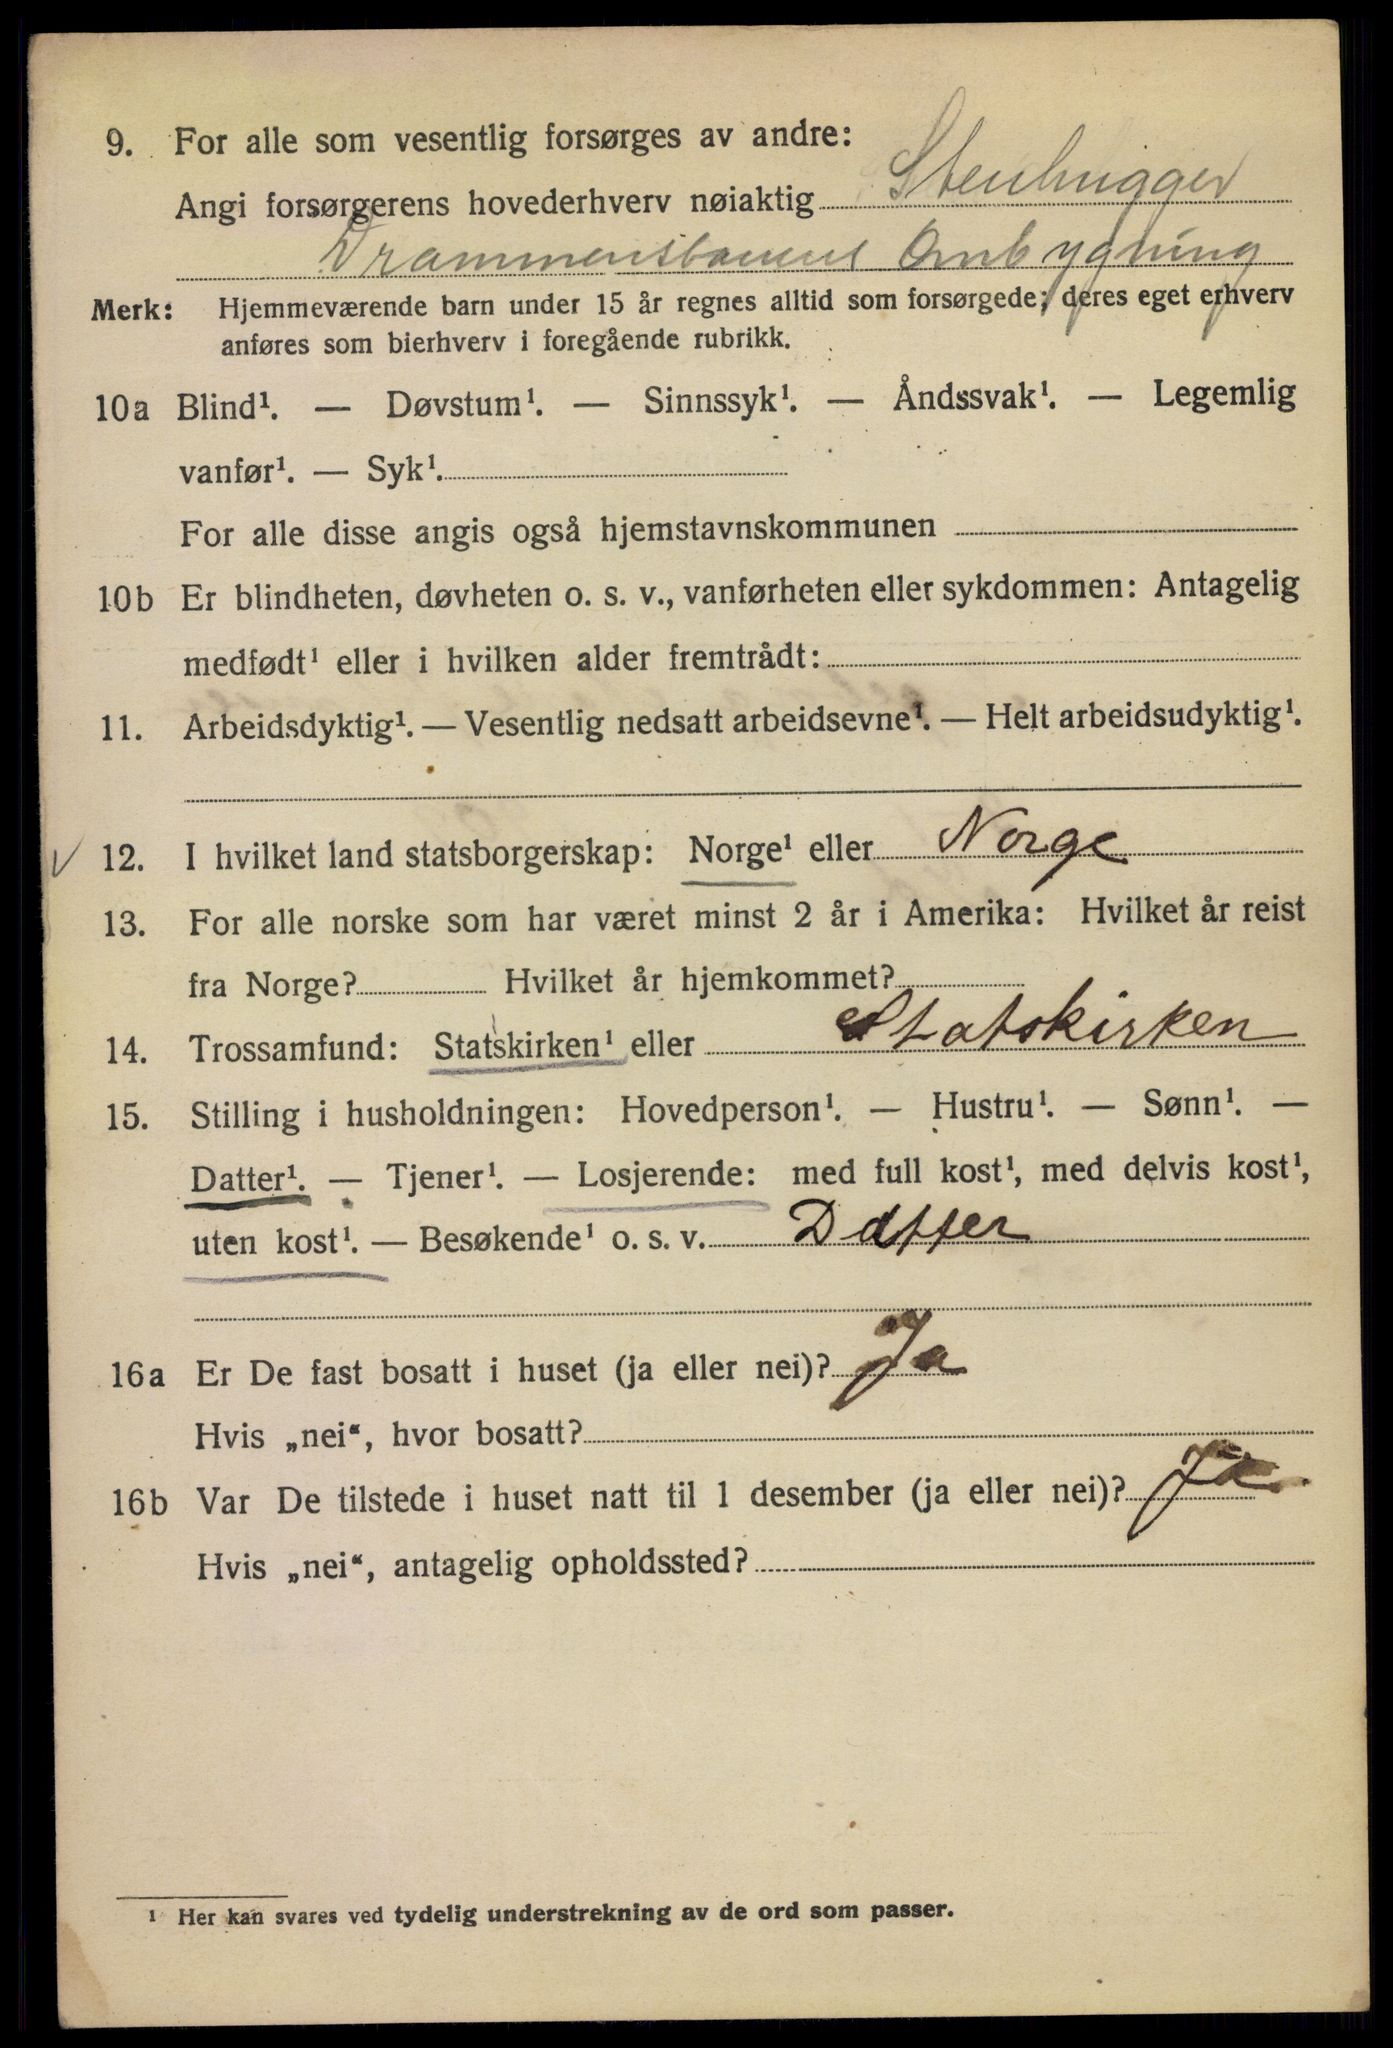 9. For alle som vesentlig forsørges av andre:
Angi forsørgerens hovederhverv nøiaktig Stenhugger
Drammensbanens Ombygning
Merk: Hjemmeværende barn under 15 år regnes alltid som forsørgede; deres eget erhverv
anføres som bierhverv i foregående rubrikk.
10a Blind¹. — Døvstum¹. — Sinnssyk¹. — Åndssvak¹. — Legemlig
vanfør¹. — Syk¹.
For alle disse angis også hjemstavnskommunen
10b Er blindheten, døvheten o. s. v., vanførheten eller sykdommen: Antagelig
medfødt¹ eller i hvilken alder fremtrådt:
11. Arbeidsdyktig¹. — Vesentlig nedsatt arbeidsevne¹. — Helt arbeidsudyktig¹.
✓ 12. I hvilket land statsborgerskap: Norge¹ eller Norge
13. For alle norske som har været minst 2 år i Amerika: Hvilket år reist
fra Norge? Hvilket år hjemkommet?
14. Trossamfund: Statskirken¹ eller Statskirken
15. Stilling i husholdningen: Hovedperson¹. — Hustru¹. — Sønn¹. —
Datter¹. — Tjener¹. — Losjerende: med full kost¹, med delvis kost¹,
uten kost¹. — Besøkende¹ o. s. v. Datter
16a Er De fast bosatt i huset (ja eller nei)? Ja
Hvis „nei“, hvor bosatt?
16b Var De tilstede i huset natt til 1 desember (ja eller nei)? Ja.
Hvis „nei“, antagelig opholdssted?
¹ Her kan svares ved tydelig understrekning av de ord som passer.